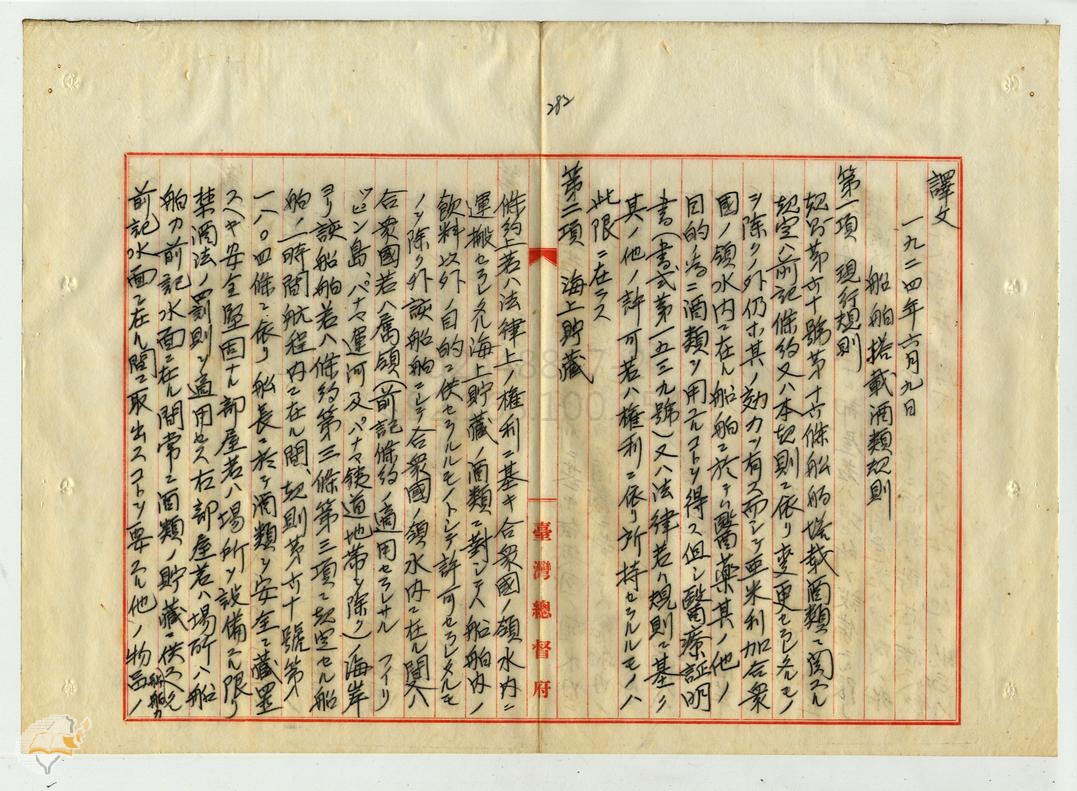 282
譯文
一九二四年六月九日
船舶搭載酒類規則
第一項 現行規則
規則第六十號第十六條船舶搭載酒類ニ関スル
規定ハ前記條約又ハ本規則ニ依リ変更セラレタルモノ
ヲ除クノ外仍ホ其ノ効力ヲ有ス而シテ亜米利加合衆
國ノ領水内ニ在ル船舶ニ於テ醫薬其ノ他ノ
目的ノ為ニ酒類ヲ用フルコトヲ得ス但シ醫療証明
書(書式第一五三九號)又ハ法律若ハ規則ニ基ク
其ノ他ノ許可若ハ権利ニ依リ所持セラルルモノハ
此限ニ在ラス
第二項 海上貯藏
條約上若ハ法律上ノ権利ニ基キ合衆國ノ領水内ニ
運搬セラレタル海上貯藏ノ酒類ニ対シテハ船舶内ノ
飲料以外ノ目的ニ供セラルルモノトシテ許可セラレタルモ
ノヲ除クノ外該船舶ニシテ合衆國ノ領水内ニ在ル間ハ
合衆國若ハ属領(前記條約ノ適用セラレサル フイリ
ッピン島、パナマ運河及パナマ鉄道地帯ヲ除ク)ノ海岸
ヨリ該船舶若ハ條約第三條第三項ニ規定セル船
舶ノ一時間航程内ニ在ル間、規則第六十號第一
一八〇四條ニ依リ船長ニ於テ酒類ヲ安全ニ藏置
スヘキ安全堅固ナル部屋若ハ場所ヲ設備スル限リ
禁酒法ノ罰則ヲ適用セス右部屋若ハ場所ハ船
舶カ前記水面ニ在ル間常ニ酒類ノ貯藏ニ供スヘク
前記水面ニ在ル間ニ取出スコトヲ要スル他ノ物品ノ
船舶カ
臺灣總督府